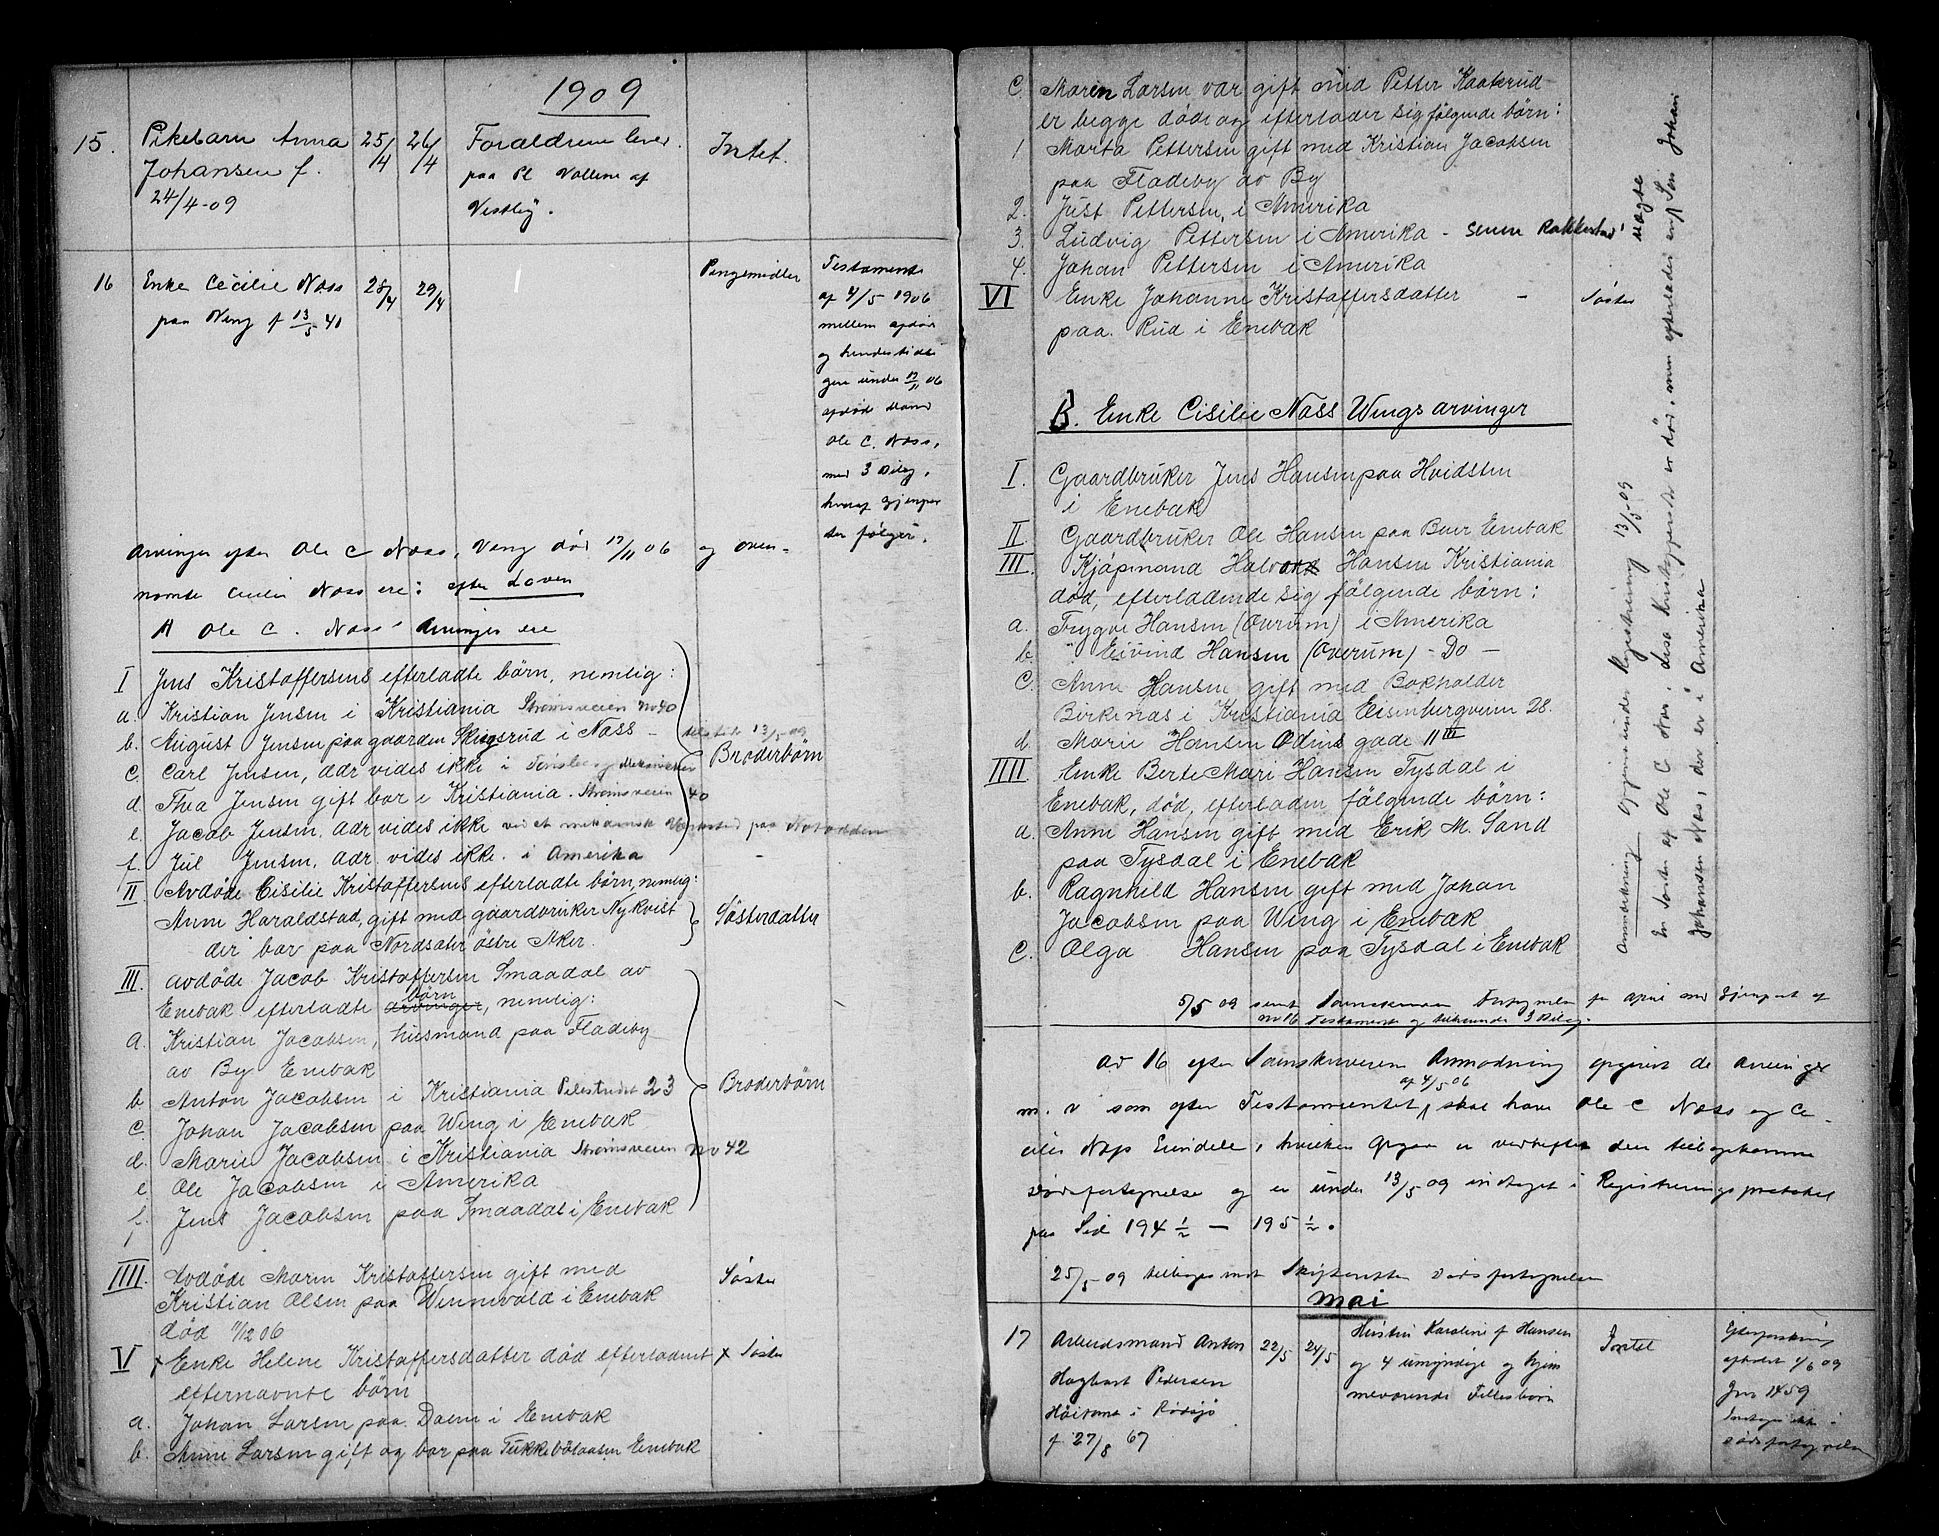 1909
15. Pikebarn Anna 25/4 26/4 Forældrene lever Intet.
Johansen f. paa Pl Vollene af
24/4-09 Vestby.
16 Enke Cecilie Næss 28/4 29/4 Pengemidler Testamente
paa Weng f 13/5 41 af 4/5 1906
mellem afdøde
og hendes tidli
gere under 17/11 06
afdød Mand
Ole C. Næss,
med 3 Bilag,
hvoraf Gjenpar
der følger.
Arvinger efter Ole C Næss, Veng død 17/11 06 og oven-
nævnte Cecilie Næss ere: efter Loven
A Ole C. Næss' Arvinger ere
I Jens Kristoffersens efterladte børn, nemlig:
a. Kristian Jensen i Kristiania Strømsveien No 40
b. August Jensen paa gaarden Skugsrud i Næss - 13/5-09
c. Carl Jensen, adr vides ikke i
d. Thea Jensen gift bor i Kristiania. Strømsveien 40
e. Jacob Jensen, adr vides ikke ved et mekanisk Værksted paa Notodden
f. Jul Jensen, adr vides ikke. i Amerika
Broderbörn
II Avdøde Cisilie Kristoffersens efterladte børn, nemlig:
Anne Haraldstad, gift med gaardbruker Nykvist Søsterdatter
der bor paa Nordsæter östre Aker.
III. Avdøde Jacob Kristoffersen Smaadal av
børn
Enebak efterladte arvinger, nemlig:
a. Kristian Jacobsen, husmand paa Fladeby
av By Enebak
b. Anton Jacobsen i Kristiania Pilestrædet 23 Broderbörn
c. Johan Jacobsen paa Wing i Enebak
d. Marie Jacobsen i Kristiania Strømsveien No 42
e Ole Jacobsen i Amerika
f. Jens Jacobsen paa Smaadal i Enebak
IIII. Avdøde Maren Kristoffersen gift med Søster
Kristian Olsen paa Wennevold i Enebak
død 11/12 06
V x Enke Helene Kristoffersdatter død efterladent x Søster
efternavnte børn
a. Johan Larsen paa Daen i Enebak
b. Anne Larsen gift og bor paa Tukkebölaasen Enebak
C. Maren Larsen var gift med Petter Kaaterud
er begge döde og efterlader sig følgende børn:
1 Marta Pettersen gift med Kristian Jacobsen
paa Fladeby av By
2. Just Pettersen, i Amerika
3. Ludvig Pettersen i Amerika - senere Rakkestad
4. Johan Pettersen i Amerika
VI Enke Johanne Kristoffersdatter - Søster
paa Rud i Enebak
B. Enke Cisilie Næss Wings arvinger
I. Gaardbruker Jens Hansen paa Hvidsten
i Enebak
II Gaardbruker Ole Hansen paa Buer Enebak
III. Kjøpmand Halvard Hansen Kristiania
død, efterladende sig følgende børn:
a. Trygve Hansen (Overum) i Amerika
b. Eivind Hansen (Overum) - Do -
C. Anne Hansen gift med Bokholder
Birkenæs i Kristiania Eisenbergveien 28.
d Marie Hansen Odins gade 11 III
IIII Enke Berte Mari Hansen Tysdal i
Enebak, død, efterladen følgende børn:
a. Anne Hansen gift med Erik M. Sand
paa Tysdal i Enebak
b. Ragnhild Hansen gift med Johan
Jacobsen paa Wing i Enebak
C. Olga Hansen paa Tysdal i Enebak
5/5 09 sendt Sorenskriveren Fortegnelse for April med Gjenpart af
No 16 Testamente og tilhørende 3 Bilag.
Av 16 efter Sorenskriverens Anmodning opgivet de arvinger
af 4/5 06
m. v som efter Testamentet skal have Ole C Næss og Ce-
cilie Næss Eiendele, hvilken Opgave er vedheftet den tilbagekomne
Dødsfortegnelse og er under 13/5 09 indtaget i Registreringsprotokol
paa Side 194 1/2 - 195 1/2.
25/5 09 tilbagesendt Skifteretten Dødsfortegnelsen
Mai
17 Arbeidsmand Anton 22/5 24/5 Hustru Karoline f Hansen Intet Efterforskning
Hagbart Pedersen og 4 umyndige og hjem 4/6 09
i Rødsjø meværende Fællesbørn Jnr 1459
f 27/8 67
Dødsfortegnelsen
Anmærkning Registrering 13/5-09
En Søster af Ole C Næs, er død, men efterlader en Søn Johan
Johansen Næs, der er i Amerika